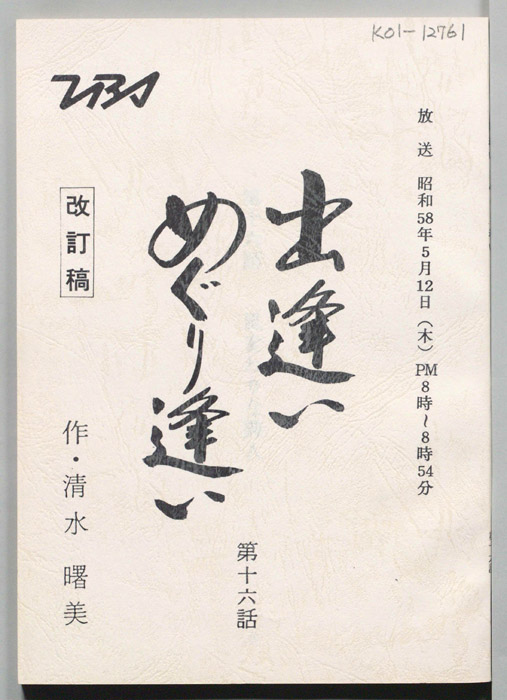 K01-12761
TBS
放送 昭和58年5月12日(木) PM8時~8時54分
出逢い
めぐり逢い
第十六話
改訂稿
作・清水 曙美